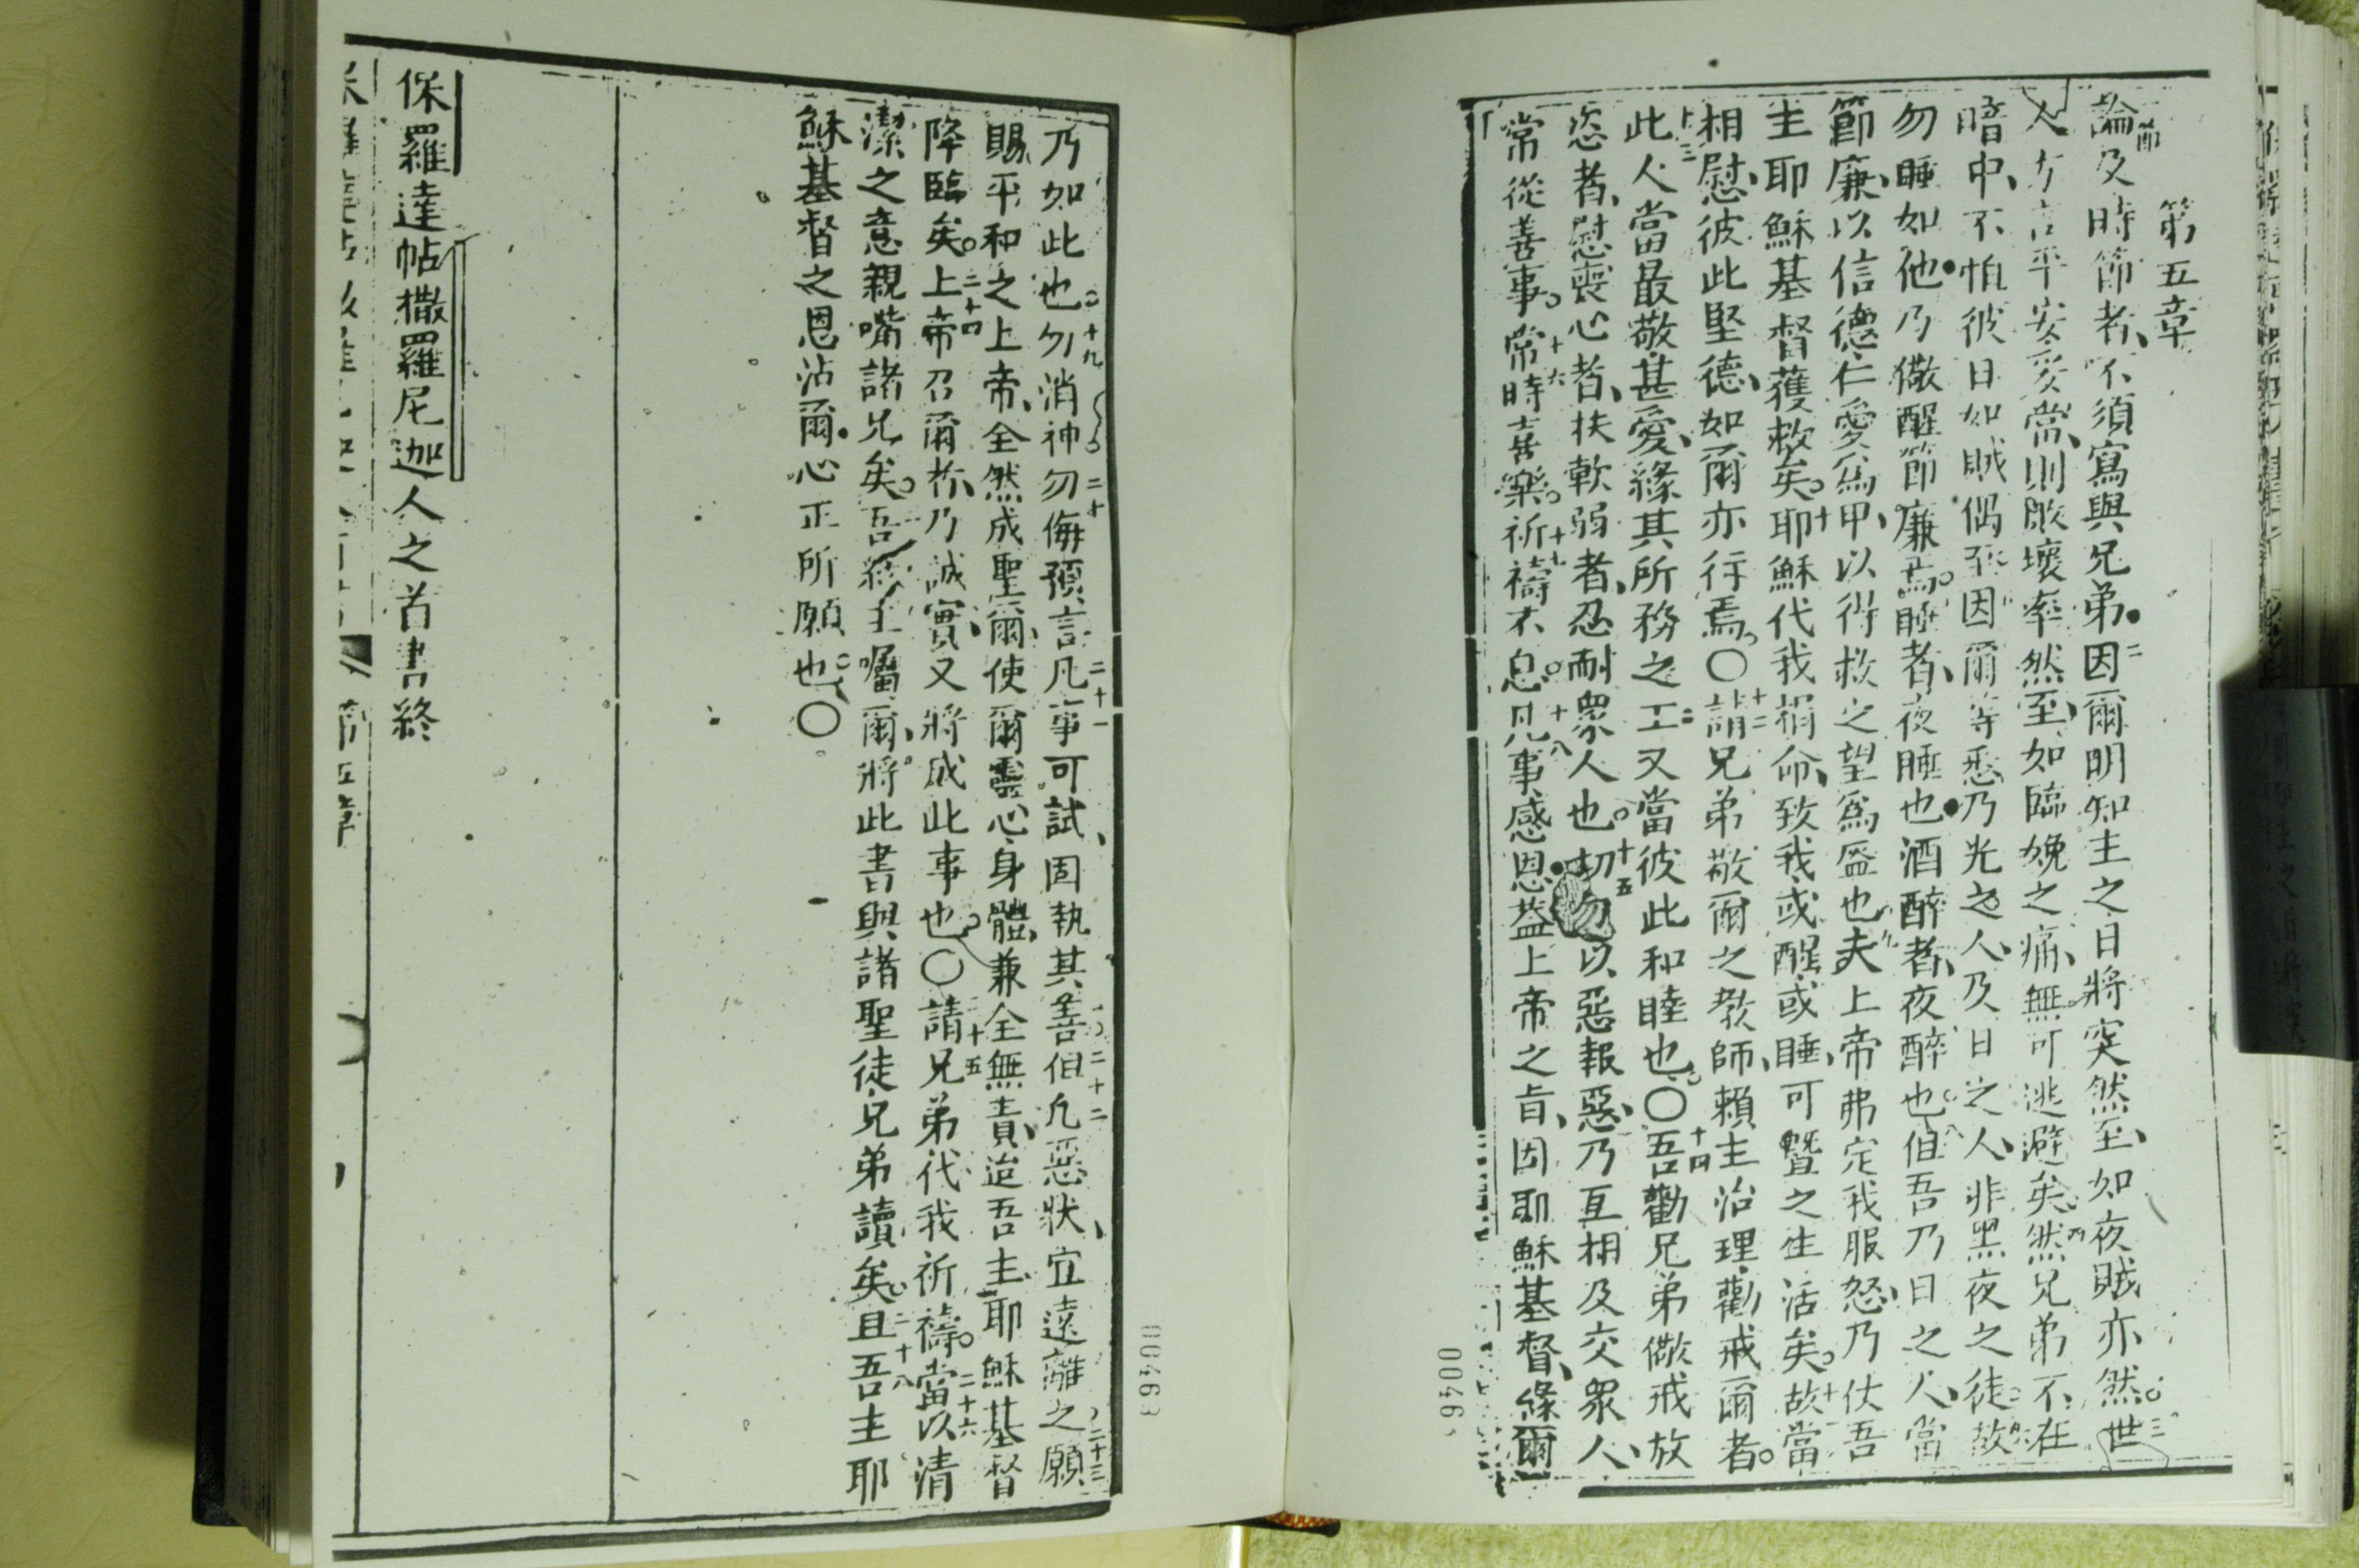 第五章
論及時節者、不須寫與兄弟●因爾明知主之日將突然至、如夜賊亦然世
人方言平安妥當、則敗壞率然至、如臨娩之痛、無可逃避矣然兄弟不在
暗中、不怕彼日如賊偶至因爾等悉乃光之人、及日之人、非黑夜之徒故
勿睡如他●乃儆醒節廉焉睡者、夜睡也●酒醉者、夜醉也但吾乃日之人、當
節廉、以信德仁愛為甲、以得救之望為盔也夫上帝弗定我服怒、乃仗吾
主耶穌基督獲救矣。十耶穌代我捐命、致我或醒或睡、可曁之生活矣。十故當
相慰、彼此堅德、如爾亦行焉。〇十二請兄弟敬爾之教師、賴主治理勸戒爾者。
十三此人當最敬甚愛、緣其所務之工又當彼此和睦也〇十四吾勸兄弟儆戒放
恣者、慰喪心者、扶軟弱者、忍耐眾人也。十五切勿以惡報惡、乃互相及交眾人、
常從善事。十六常時喜樂。十七祈禱不息。十八凡事感恩、益上帝之旨、因耶穌基督、緣爾
00462
乃如此也。十九勿消神二十勿侮預言二十一凡事可試、固執其善二十二但凢惡狀、宜遠離之二十三願
賜平和之上帝、全然成聖爾、使爾靈心身體、兼全無責、迨吾主耶穌基督
降臨矣。二十四上帝召爾㭍乃誠實、又將成此事也。〇十五請兄弟代我祈禱。二十六當以清
潔之意親嘴諸兄矣。吾主囑爾、將此書與諸聖徒兄弟讀矣。二十八且吾主耶
穌基督之恩沾爾●心正所願也。〇
00463
保羅達帖撒羅尼迦人之首書終
五章